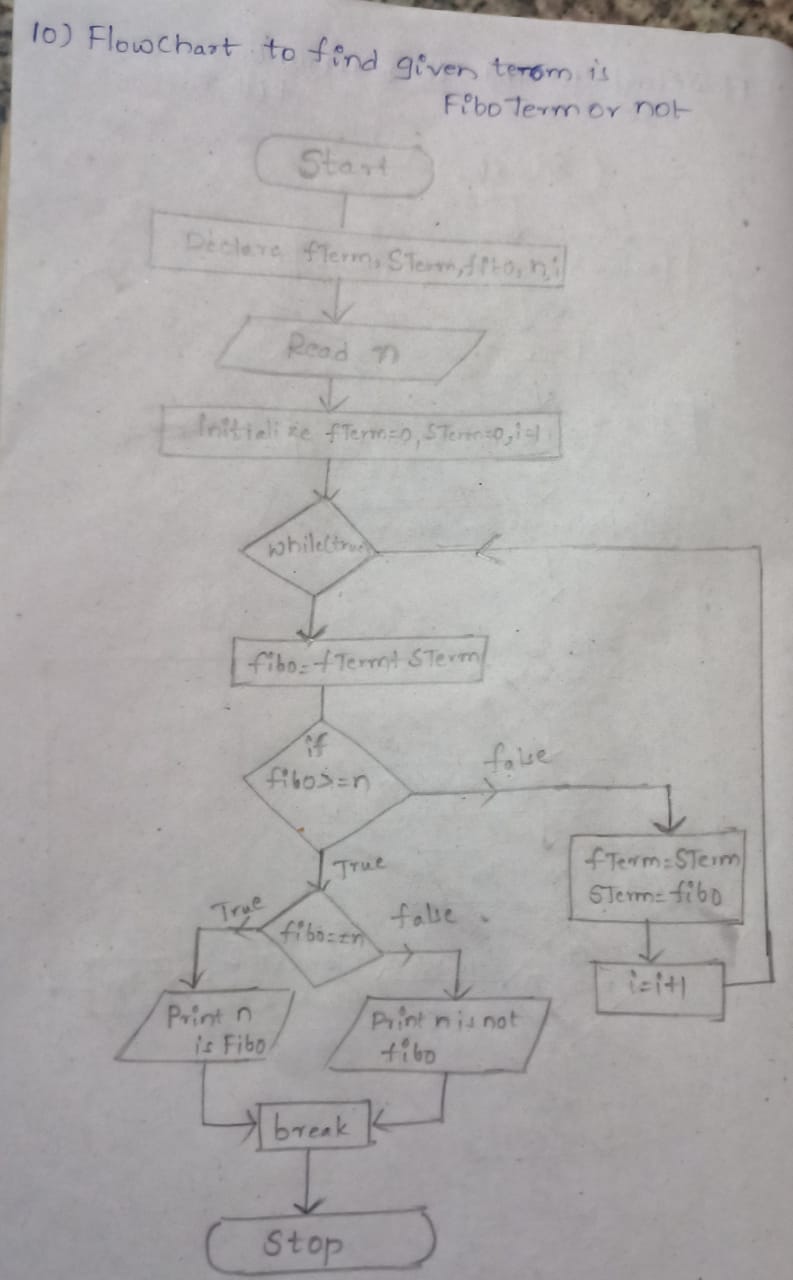 10) FlowChart to find given term is
Fibo Term or not
Start
Declare fTerm, STerm, fibo, n, i
Read n
Initialize fTerm=0, STerm=0, i=1
while(true)
fibo=fTerm+STerm
if
fibo>=n
false
fTerm=STerm
STerm=fibo
i=i+1
True
True
fibo==n
false
Print n
is Fibo
Print n is not
fibo
break
Stop